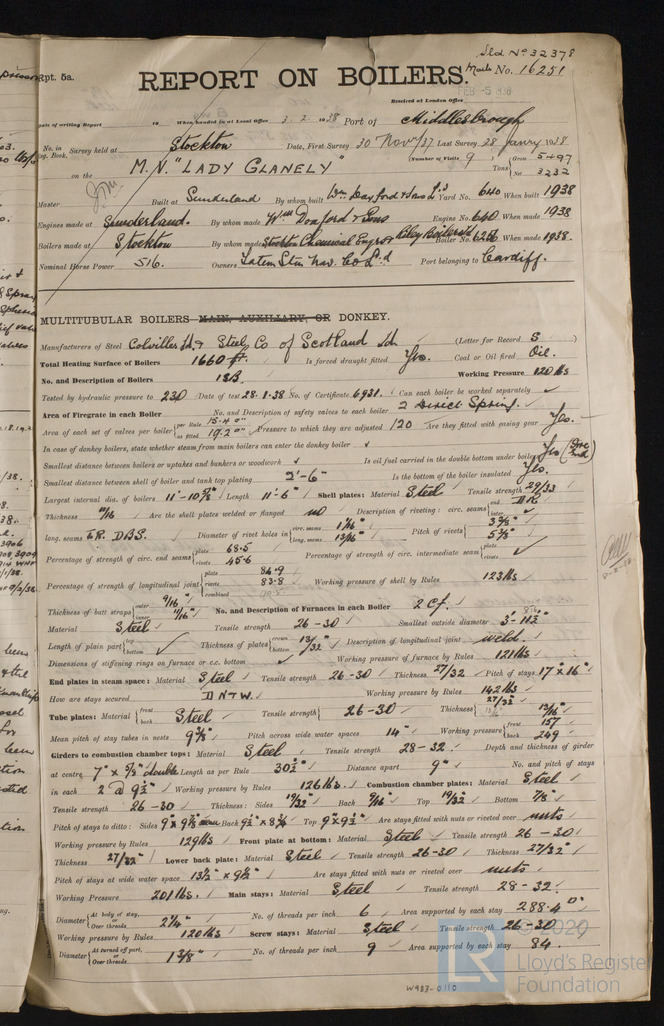 Sld No 32378
Rpt. 5a.
Mark No. 16251
REPORT ON BOILERS.
FEB -5 1938
Received at London Office
Date of writing Report 19 When handed in at Local Office 3. 2. 1938 Port of Middlesbrough
No. in Reg. Book. Survey held at Stockton Date, First Survey 30 Nov'/37 Last Survey 28 Janry 1938
on the M.V. "LADY GLANELY" (Number of Visits 9) Tons {Gross 5497
Net 3232
Master Built at Sunderland By whom built Wm Doxford & Sons Ld Yard No. 640 When built 1938
Engines made at Sunderland. By whom made Wm Doxford & Sons Engine No. 640 When made 1938
Boilers made at Stockton By whom made Stockton Chemical Engrs & Riley Boilers Ld Boiler No. 6256 When made 1938.
Nominal Horse Power 516. Owners Tatem Stm Nav. Co Ld Port belonging to Cardiff.
MULTITUBULAR BOILERS MAIN, AUXILIARY, OR DONKEY.
Manufacturers of Steel Colvilles Ld. & Steel Co of Scotland Ld (Letter for Record S)
Total Heating Surface of Boilers 1660 ft. Is forced draught fitted Yes. Coal or Oil fired Oil.
No. and Description of Boilers 1 SB. Working Pressure 120 lbs
Tested by hydraulic pressure to 230 Date of test 28.1.38 No. of Certificate 6931. Can each boiler be worked separately ✓
Area of Firegrate in each Boiler No. and Description of safety valves to each boiler 2 Direct Spring.
Area of each set of valves per boiler {per Rule 15.4 □" as fitted 19.2 □" Pressure to which they are adjusted 120 Are they fitted with easing gear Yes.
In case of donkey boilers, state whether steam from main boilers can enter the donkey boiler ✓
Smallest distance between boilers or uptakes and bunkers or woodwork ✓ Is oil fuel carried in the double bottom under boiler Yes
Smallest distance between shell of boiler and tank top plating 2'-6" Is the bottom of the boiler insulated Yes.
Largest internal dia. of boilers 11'-10 Length 11'-6" Shell plates: Material Steel Tensile strength 29/33
Thickness 11/16 Are the shell plates welded or flanged no Description of riveting: circ. seams {end DR. inter ✓
long. seams TR. DBS. Diameter of rivet holes in {circ. seams 1 1/16" long. seams 13/16" Pitch of rivets {3 5/8" 5 3/8"
Percentage of strength of circ. end seams {plate 68.5 rivets 45.6 Percentage of strength of circ. intermediate seam {plate rivets ✓
Percentage of strength of longitudinal joint {plate 84.9 rivets 83.8 combined Working pressure of shell by Rules 123 lbs
Thickness of butt straps {outer 9/16" inner 11/16" No. and Description of Furnaces in each Boiler 2 Cf.
Material Steel Tensile strength 26-30 Smallest outside diameter 3'-11 1/2"
Length of plain part {top bottom ✓ Thickness of plates {crown bottom 13/32" Description of longitudinal joint weld.
Dimensions of stiffening rings on furnace or c.c. bottom ✓ Working pressure of furnace by Rules 121 lbs
End plates in steam space: Material Steel Tensile strength 26-30 Thickness 27/32 Pitch of stays 17" x 16"
How are stays secured DNTW. Working pressure by Rules 142 lbs
Tube plates: Material {front back Steel Tensile strength { 26-30 Thickness { 27/32" 13/16"
Mean pitch of stay tubes in nests 9 3/8" Pitch across wide water spaces 14" Working pressure {front 157 back 249
Girders to combustion chamber tops: Material Steel Tensile strength 28-32 Depth and thickness of girder
at centre 7" x 5/8" double Length as per Rule 30 1/2" Distance apart 9" No. and pitch of stays
in each 2 @ 9 1/2" Working pressure by Rules 126 lbs. Combustion chamber plates: Material Steel
Tensile strength 26-30 Thickness: Sides 19/32" Back 9/16" Top 19/32" Bottom 7/8"
Pitch of stays to ditto: Sides 9" x 9 7/8" Back 9 1/2" x 8 3/4" Top 9" x 9 1/2" Are stays fitted with nuts or riveted over nuts
Working pressure by Rules 129 lbs Front plate at bottom: Material Steel Tensile strength 26-30
Thickness 27/32" Lower back plate: Material Steel Tensile strength 26-30 Thickness 27/32"
Pitch of stays at wide water space 13 1/2" x 9 1/2" Are stays fitted with nuts or riveted over nuts
Working Pressure 201 lbs. Main stays: Material Steel Tensile strength 28-32.
Diameter {At body of stay, or Over threads 2 1/4" No. of threads per inch 6 Area supported by each stay 288.4 □"
Working pressure by Rules 120 lbs Screw stays: Material Steel Tensile strength 26-30
Diameter {At turned off part, or Over threads 1 3/8" No. of threads per inch 9 Area supported by each stay 84
© 2020
LR
Lloyd's Register
Foundation
W983-0110